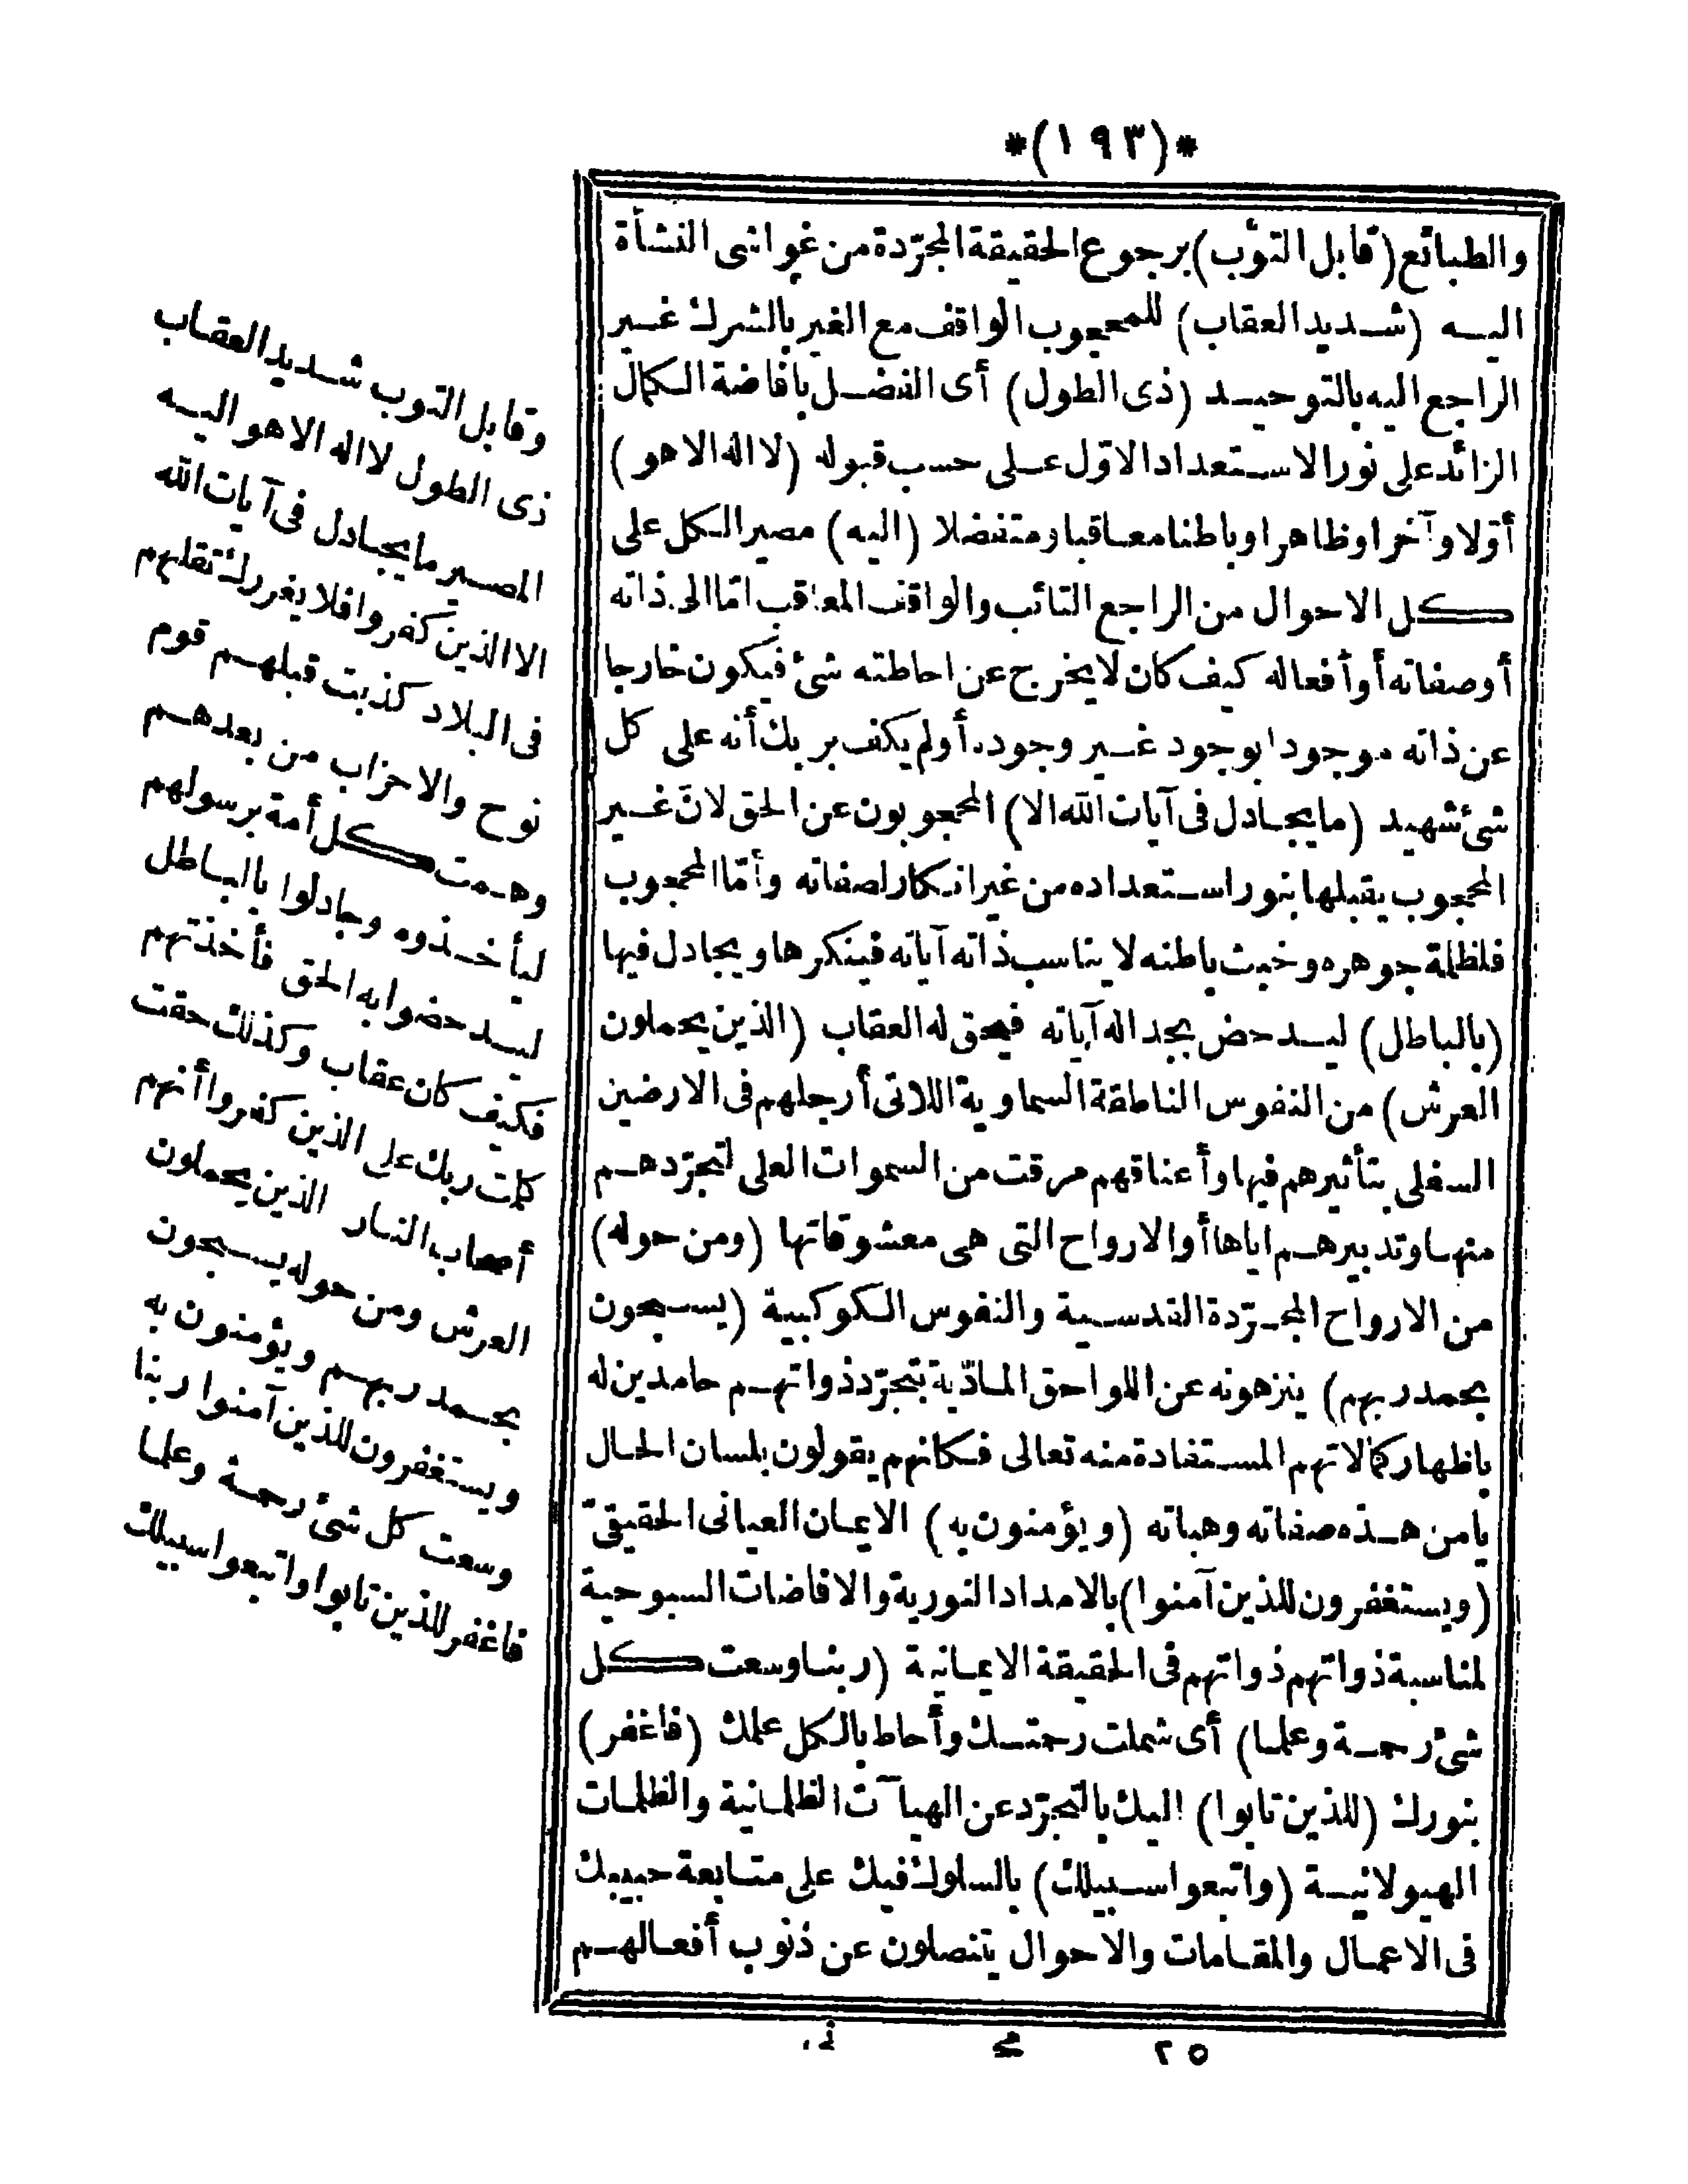 *(١٩٣)*
والطبائع (قابل التوب) برجوع الحقيقة المجرّدة من غواشى النشأة
اليه (شديد العقاب) للمحجوب الواقف مع الغير بالشرك غير
الراجع اليه بالتوحيد (ذى الطول) أى الفضل بافاضة الكمال
الزائد على نور الاستعداد الاوّل على حسب قبوله (لا اله الا هو)
أوّلا وآخرا وظاهرا وباطنا معاقبا ومتفضلا (اليه) مصير الكل على
كل الاحوال من الراجع التائب والواقف المعاقب امّا الى ذاته
أو صفاته أو أفعاله كيف كان لا يخرج عن احاطته شئ فيكون خارجا
عن ذاته موجودا بوجود غير وجوده أولم يكف بربك أنه على كل
شئ شهيد (ما يجادل فى آيات الله الا) المحجوبون عن الحق لانّ غير
المحجوب يقبلها بنور استعداده من غير انكار لصفاته وأمّا المحجوب
فلظلمة جوهره وخبث باطنه لا يناسب ذاته آياته فينكرها ويجادل فيها
(بالباطل) ليدحض بجداله آياته فيحق له العقاب (الذين يحملون
العرش) من النفوس الناطقة السماوية اللاتى أرجلهم فى الارضين
السفلى بتأثيرهم فيها وأعناقهم مرقت من السموات العلى لتجرّدهم
منها وتدبيرهم اياها أو الارواح التى هى معشوقاتها (ومن حوله)
من الارواح المجرّدة القدسية والنفوس الكوكبية (يسبحون
بحمد ربهم) ينزهونه عن اللواحق المادّية بتجرّد ذواتهم حامدين له
باظهار كمالاتهم المستفادة منه تعالى فكانهم يقولون بلسان الحال
يا من هذه صفاته وهباته (ويؤمنون به) الايمان العيانى الحقيقىّ
(ويستغفرون للذين آمنوا) بالامداد النورية والافاضات السبوحية
لمناسبة ذواتهم ذواتهم فى الحقيقة الايمانية (ربنا وسعت كل
شئ رحمة وعلما) أى شملت رحمتك وأحاط بالكل علمك (فاغفر)
بنورك (للذين تابوا) اليك بالتجرّد عن الهيآت الظلمانية والظلمات
الهيولانية (واتبعوا سبيلك) بالسلوك فيك على متابعة حبيبك
فى الاعمال والمقامات والاحوال يتنصلون عن ذنوب أفعالهم
وقابل التوب شديد العقاب
ذى الطول لا اله الا هو اليه
المصير ما يجادل فى آيات الله
الا الذين كفروا فلا يغررك تقلبهم
فى البلاد كذبت قبلهم قوم
نوح والاحزاب من بعدهم
وهمت كل أمة برسولهم
ليأخذوه وجادلوا بالباطل
ليدحضوا به الحق فأخذتهم
فكيف كان عقاب وكذلك حقت
كلمت ربك على الذين كفروا أنهم
أصحاب النار الذين يحملون
العرش ومن حوله يسبحون
بحمد ربهم ويؤمنون به
ويستغفرون للذين آمنوا ربنا
وسعت كل شئ رحمة وعلما
فاغفر للذين تابوا واتبعوا سبيلك
٢٥ مح نى